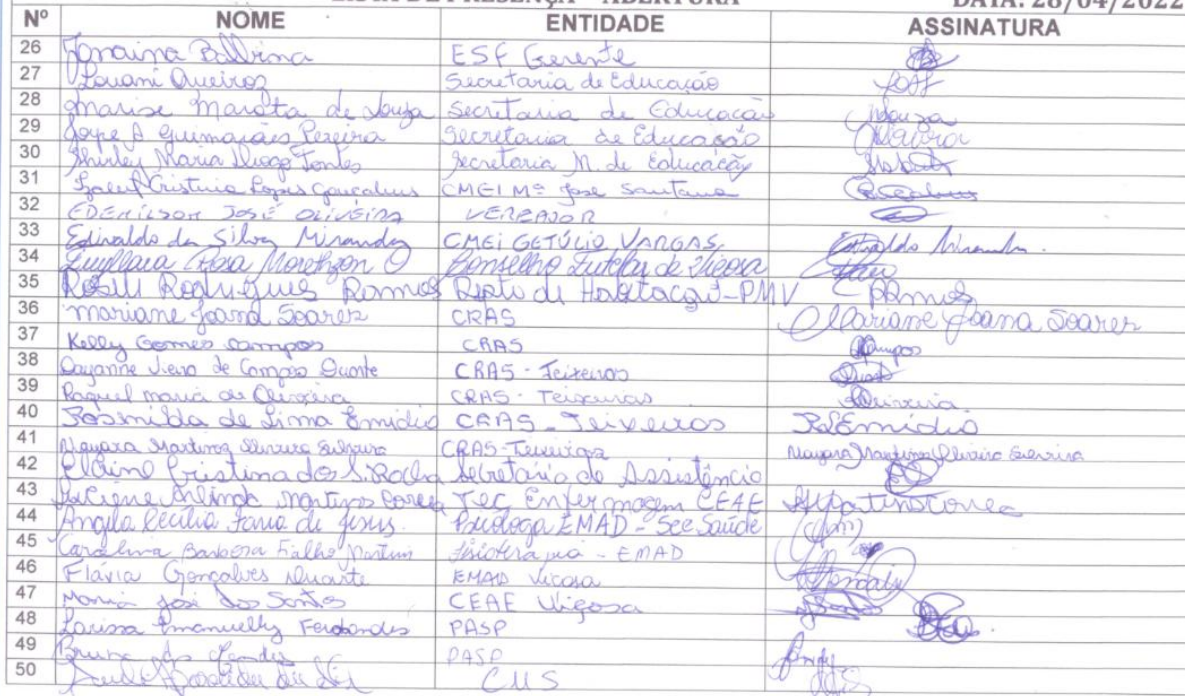 LISTA DE PRESENÇA – ABERTURA DATA: 28/04/2022
Nº NOME ENTIDADE ASSINATURA
26 Janaina Balbina ESF Gerente
27 Louani Queiroz Secretaria de Educação
28 Marise Marota de Souza Secretaria de Educação Souza
29 Joyce A Guimarães Pereira Secretaria de Educação
30 Shirley Maria Diogo Fontes Secretaria M. de Educação
31 Cristina Lopes Gonçalves CMEI Mº José Santana
32 EDENILSON JOSÉ OLIVEIRA VEREADOR
33 Edivaldo da Silva Miranda CMEI GETÚLIO VARGAS Edivaldo Miranda.
34 Rosa Conselho Tutelar de Viçosa
35 Roseli Rodrigues Ramos Depto de Habitação-PMV Ramos
36 Mariane Joana Soares CRAS Mariane Joana Soares
37 Kelly Gomes Campos CRAS Campos
38 Dayanne Viera de Campos Duarte CRAS - Teixeiras
39 Raquel maria de Oliveira CRAS - Teixeiras Oliveira
40 Rosmilda de Lima Emidio CRAS - Teixeiras REmidio
41 Nayara Martins Oliveira CRAS-Teixeiras Nayara Martins Oliveira
42 Elaine Cristina dos S. Rocha Secretaria de Assistência
43 Martins Tec Enfermagem CEAE
44 Angela Cecília Faria de Jesus. Psicologa EMAD - Sec Saúde
45 Carolina Barbosa Fialho Martins Fisioterapia - EMAD
46 Flávia Gonçalves Duarte EMAD Viçosa
47 Maria José dos Santos CEAE Viçosa
48 Larissa Emanuelly Fernandes PASP
49 Bruna PASP
50 CMS